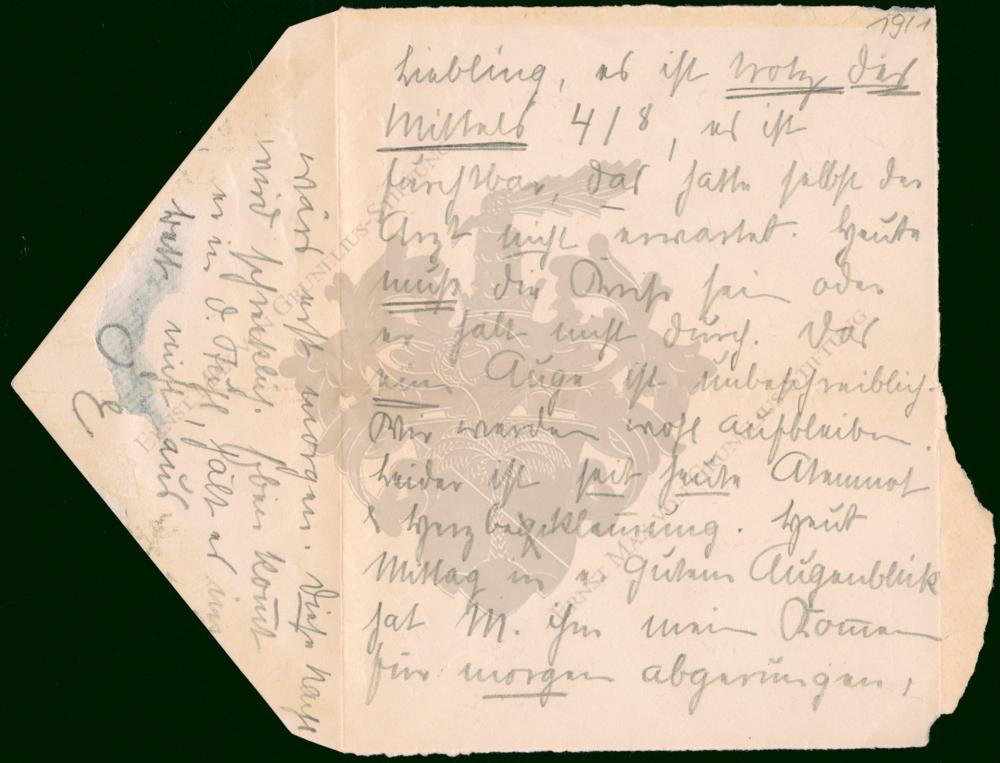 1911
Liebling, es ist trotz des
Mittels 4/8, es ist
furchtbar, das hatte selbst der
Arzt nicht erwartet. Heute
muß die Krise sein oder
er hält nicht durch. Das
eine Auge ist unbeschreiblich.
Wir werden wohl aufbleiben
Leider ist seit heute Atemnot
& Herzbeklemmung. Heut
Mittag in e. guten Augenblick
hat M. ihm mein Komen
für morgen abgerungen,
wäre erst morgen. Diese Nacht
wird schrecklich. Eben komt
er in d. Stuhl, hält es im
Bett nicht aus
E.
GRUNELIUS-STIFTUNG
ERNST MAX
GRUNELIUS-STIFTUNG